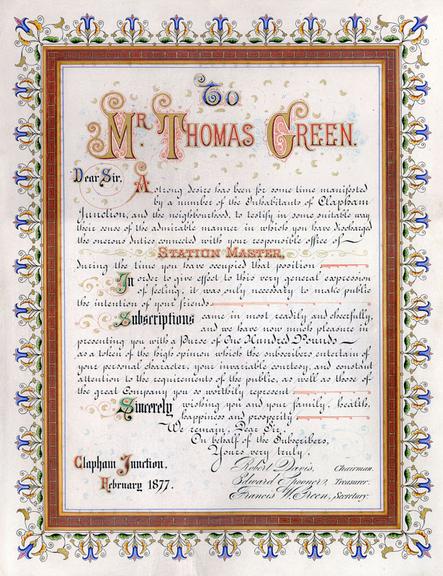 To
Mr Thomas Green.
Dear Sir,
A strong desire has been for some time manifested
by a number of the Inhabitants of Clapham
Junction, and the neighbourhood, to testify in some suitable way
their sense of the admirable manner in which you have discharged
the onerous duties connected with your responsible office of
Station Master,
during the time you have occupied that position
In order to give effect to this very general expression
of feeling, it was only necessary to make public
the intention of your friends
Subscriptions came in most readily and cheerfully,
and we have now much pleasure in
presenting you with a Purse of One Hundred Pounds
as a token of the high opinion which the subscribers entertain of
your personal character, your invariable courtesy, and constant
attention to the requirements of the public, as well as those of
the great Company you so worthily represent
Sincerely wishing you and your family, health,
happiness and prosperity
We remain, Dear Sir,
On behalf of the Subscribers,
Yours very truly,
Robert Davis, Chairman.
Edward Spooner, Treasurer.
Francis W. Green, Secretary.
Clapham Junction.
February 1877.